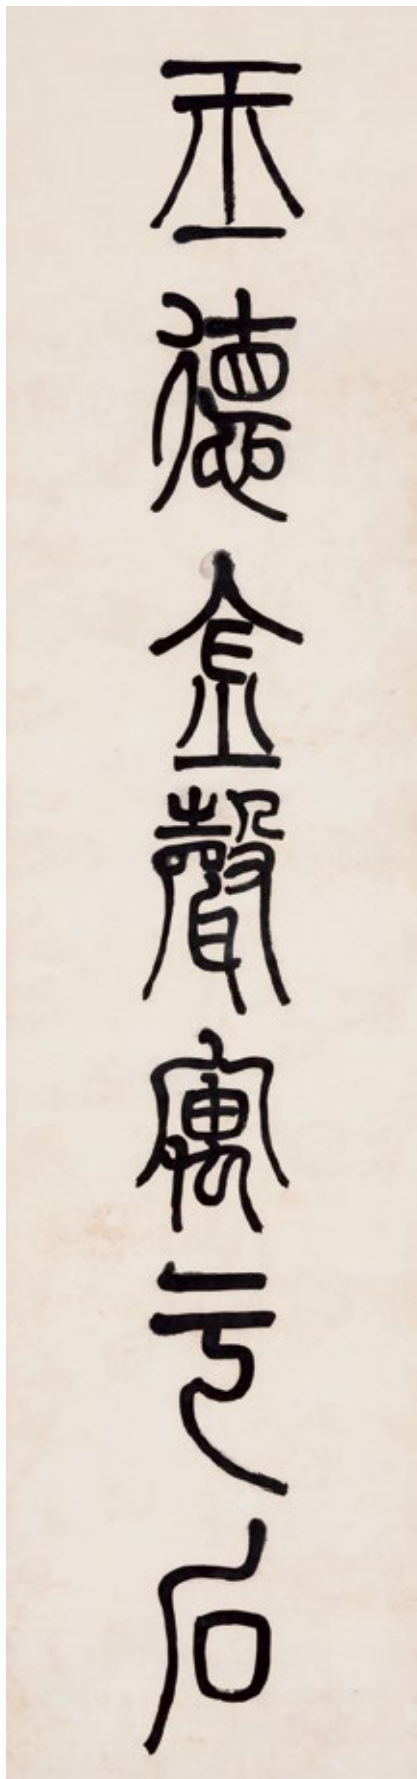 玉德金聲寓于石